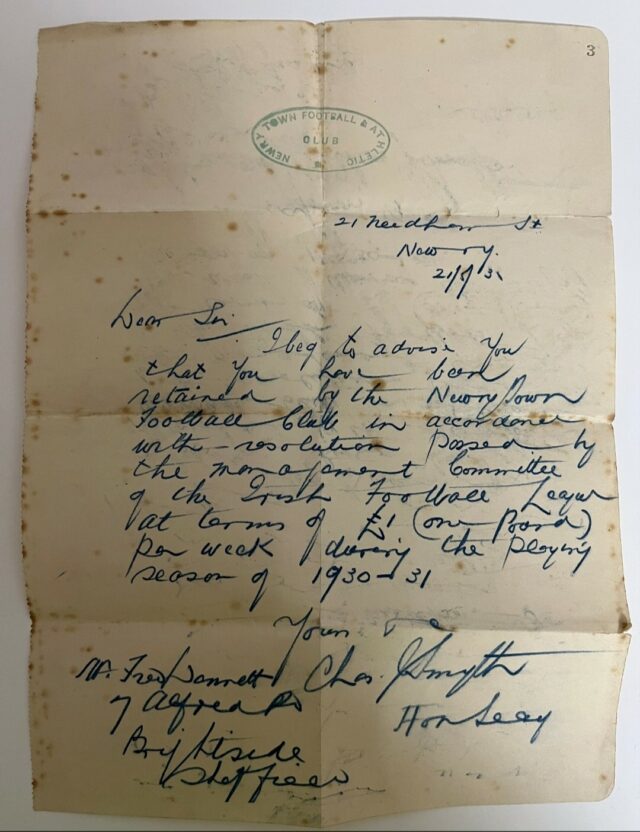 3
NEWRY TOWN FOOTBALL & ATHLETIC
CLUB
21 Needham St
Newry.
Dear Sir
I beg to advise You
that You have been
retained by the Newry Town
Football Club in accordance
with resolution passed by
the management Committee
of the Irish Football League
at terms of £1 (one Pound)
per week during the playing
season of 1930-31
Yours
Chas. Smyth
Hon Secy
Mr. Fred
7 Alfred Rd
Brightside
Sheffield